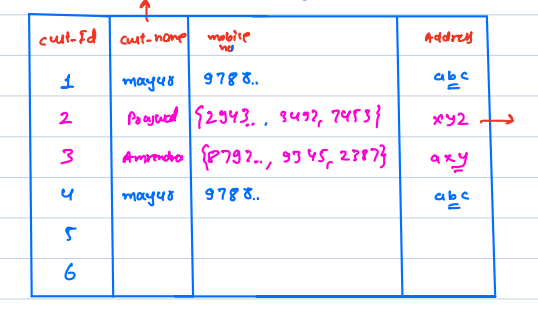 cust-Id cust-name mobile no Address
1 mayur 9788.. abc
2 Prajwal {2943.., 3492, 7453} xyz
3 Amrendra {8792.., 9345, 2387} axy
4 mayur 9788.. abc
5
6